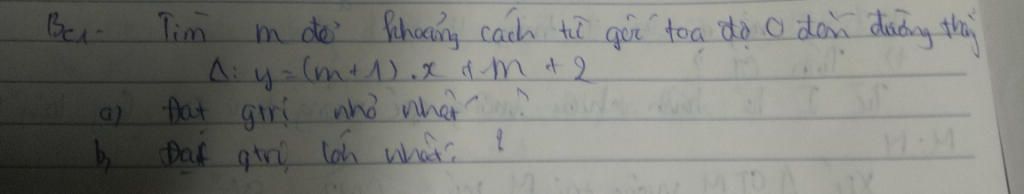 Bc1. Tìm m để khoảng cách từ gốc toạ độ O đến đường thẳng
Δ: y = (m+1).x + m + 2
a) Đạt gtrị nhỏ nhất?
b, Đạt gtrị lớn nhất?